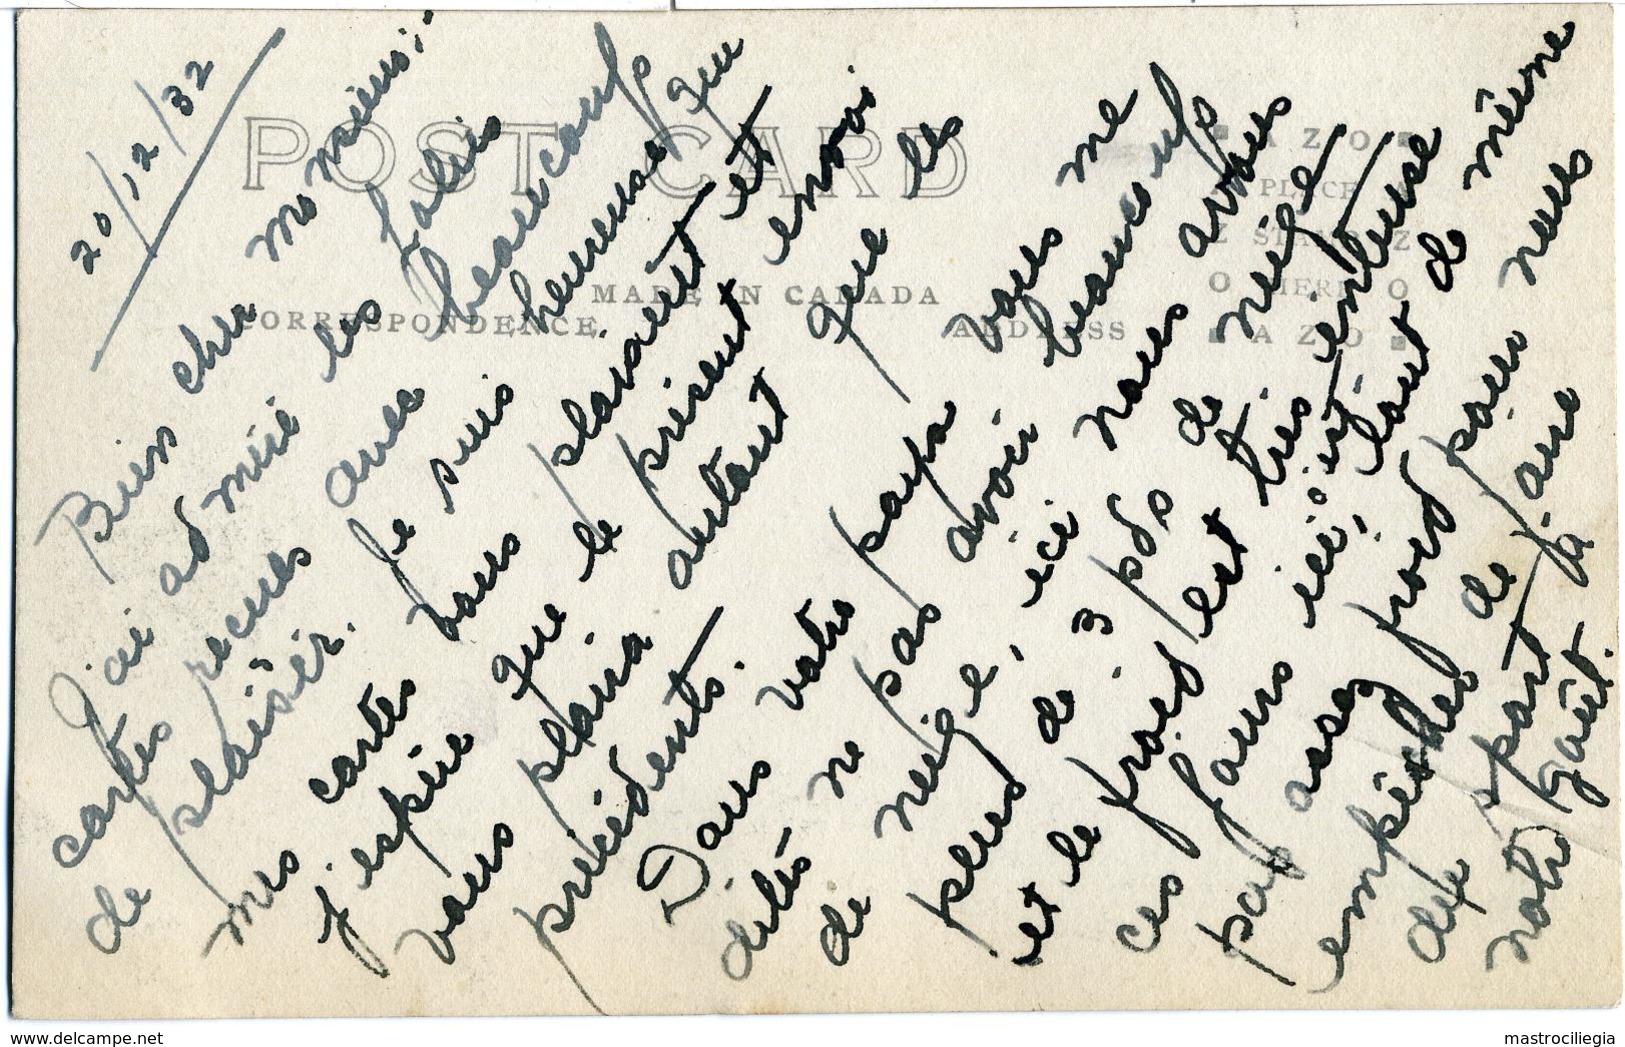 20/12/32
Bien cher monsieur:-
J'ai admiré les jolies
cartes recues avec beaucoup
de plaisir. Je suis heureuse que
mes cartes vous plaisent et
j'espère que le présent envoi
vous plaira autant que les
précédents.
Dans votre papa vous me
dites ne pas avoir beaucoup
de neige, ici nous avons
plus de 3 pds de neige
et le froid est très intense
ces jours ici, il faut de même
pas assez froid pour nous
empêcher de jouir
du sport à
notre goût.
POST CARD
MADE IN CANADA
CORRESPONDENCE
ADDRESS
AZO
PLACE
STAMP
HERE
AZO
mastrociliegia